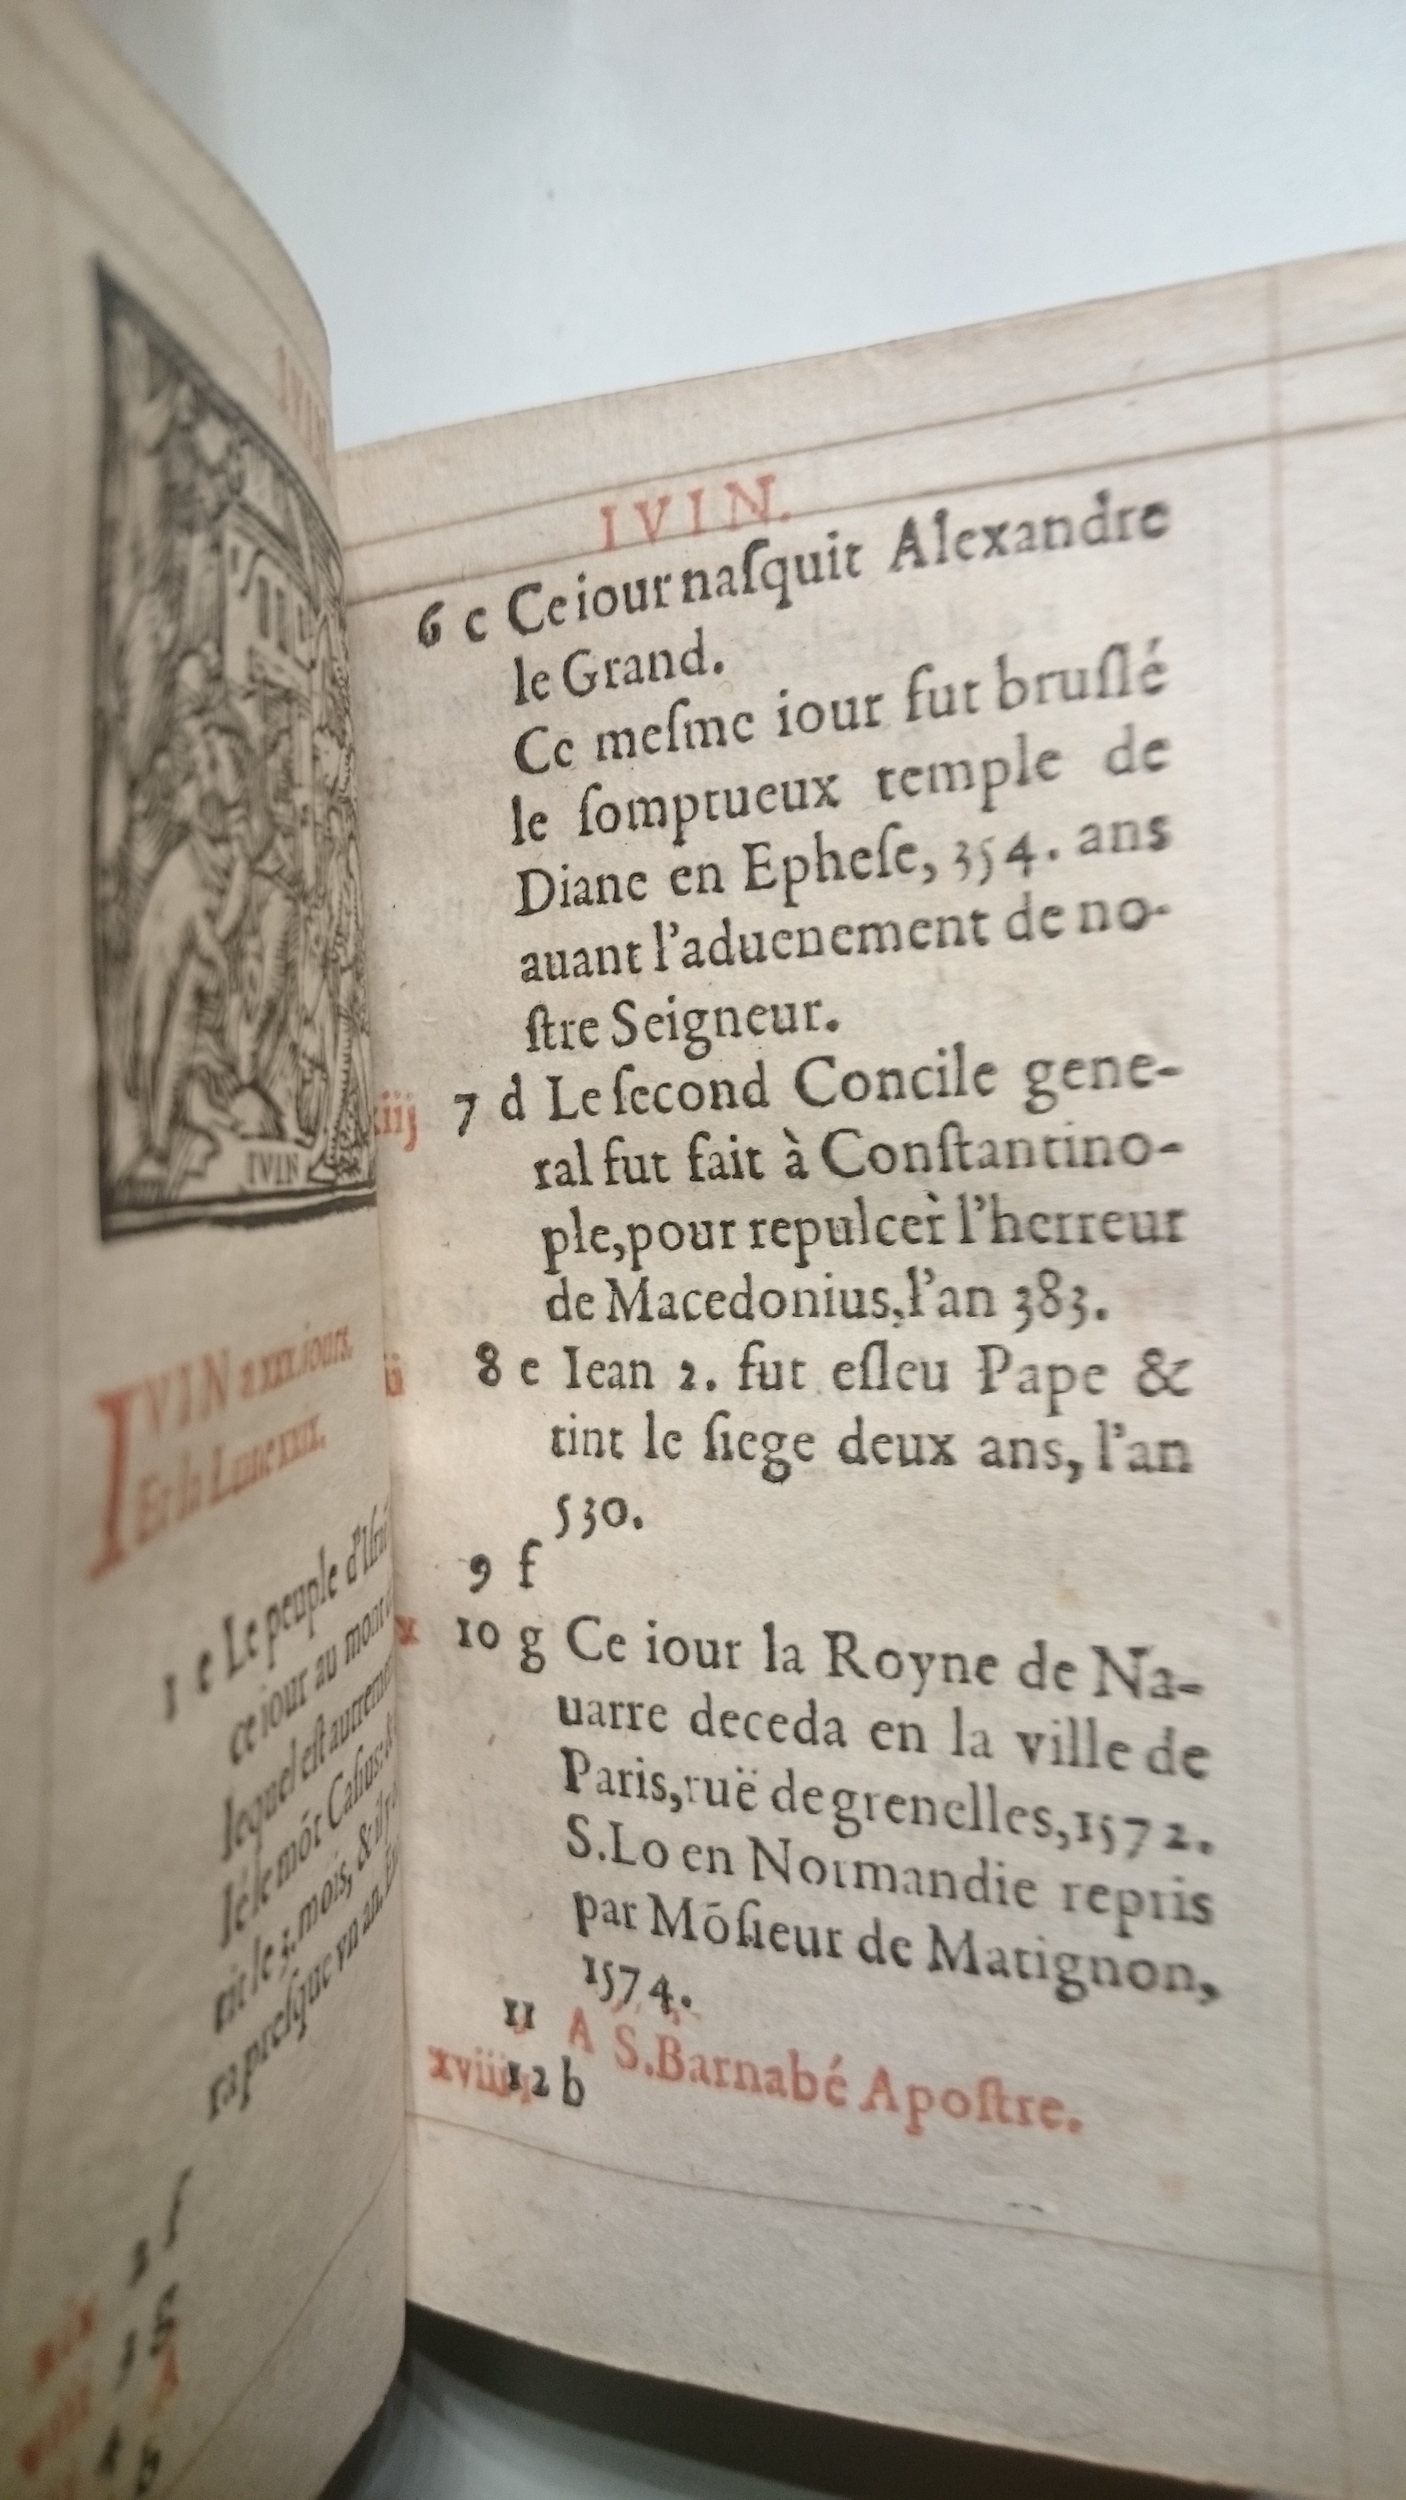 IVIN
IVIN a xxx. iours.
Et la Lune xxix.
1 e Le peuple d'Iſra
ce iour au mont
lequel eſt autreme
le mõt Caſius:
le 3. mois, &
ra preſque vn an.
IVIN.
6 c Ce iour naſquit Alexandre
le Grand.
Ce meſme iour fut bruſlé
le ſomptueux temple de
Diane en Epheſe, 354. ans
auant l'aduenement de no-
ſtre Seigneur.
iij 7 d Le ſecond Concile gene-
ral fut fait à Conſtantino-
ple, pour repulcer l'herreur
de Macedonius, l'an 383.
ii 8 e Iean 2. fut eſleu Pape &
tint le ſiege deux ans, l'an
530.
9 f
x 10 g Ce iour la Royne de Na-
uarre deceda en la ville de
Paris, ruë de grenelles, 1572.
S. Lo en Normandie repris
par Mõſieur de Matignon,
1574.
11 A S. Barnabé Apoſtre.
xviij 12 b